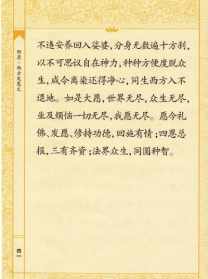 不违安养回入娑婆，分身无数遍十方刹，
以不可思议自在神力，种种方便度脱众
生，咸令离染还得净心，同生西方入不
退地。如是大愿，世界无尽，众生无尽，
业及烦恼一切无尽，我愿无尽。愿今礼
佛、发愿、修持功德，回施有情；四恩总
报，三有齐资；法界众生，同圆种智。